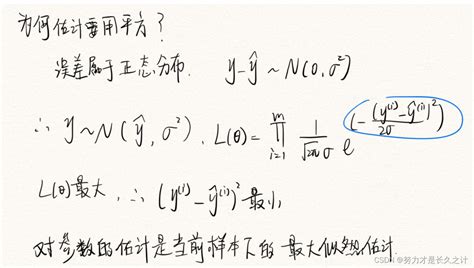 为何估计要用平方?
误差属于正态分布. y-ŷ ~ N(0, σ²)
∴ y ~ N(ŷ, σ²). L(θ) = ∏_{i=1}^{m} 1/(√2π σ) e^(-(y^(i)-ŷ^(i))²/2σ)
L(θ)最大, ∴ (y^(i)-ŷ^(i))² 最小
对参数的估计是当前样本下的 最大似然估计.
CSDN @努力才是长久之计